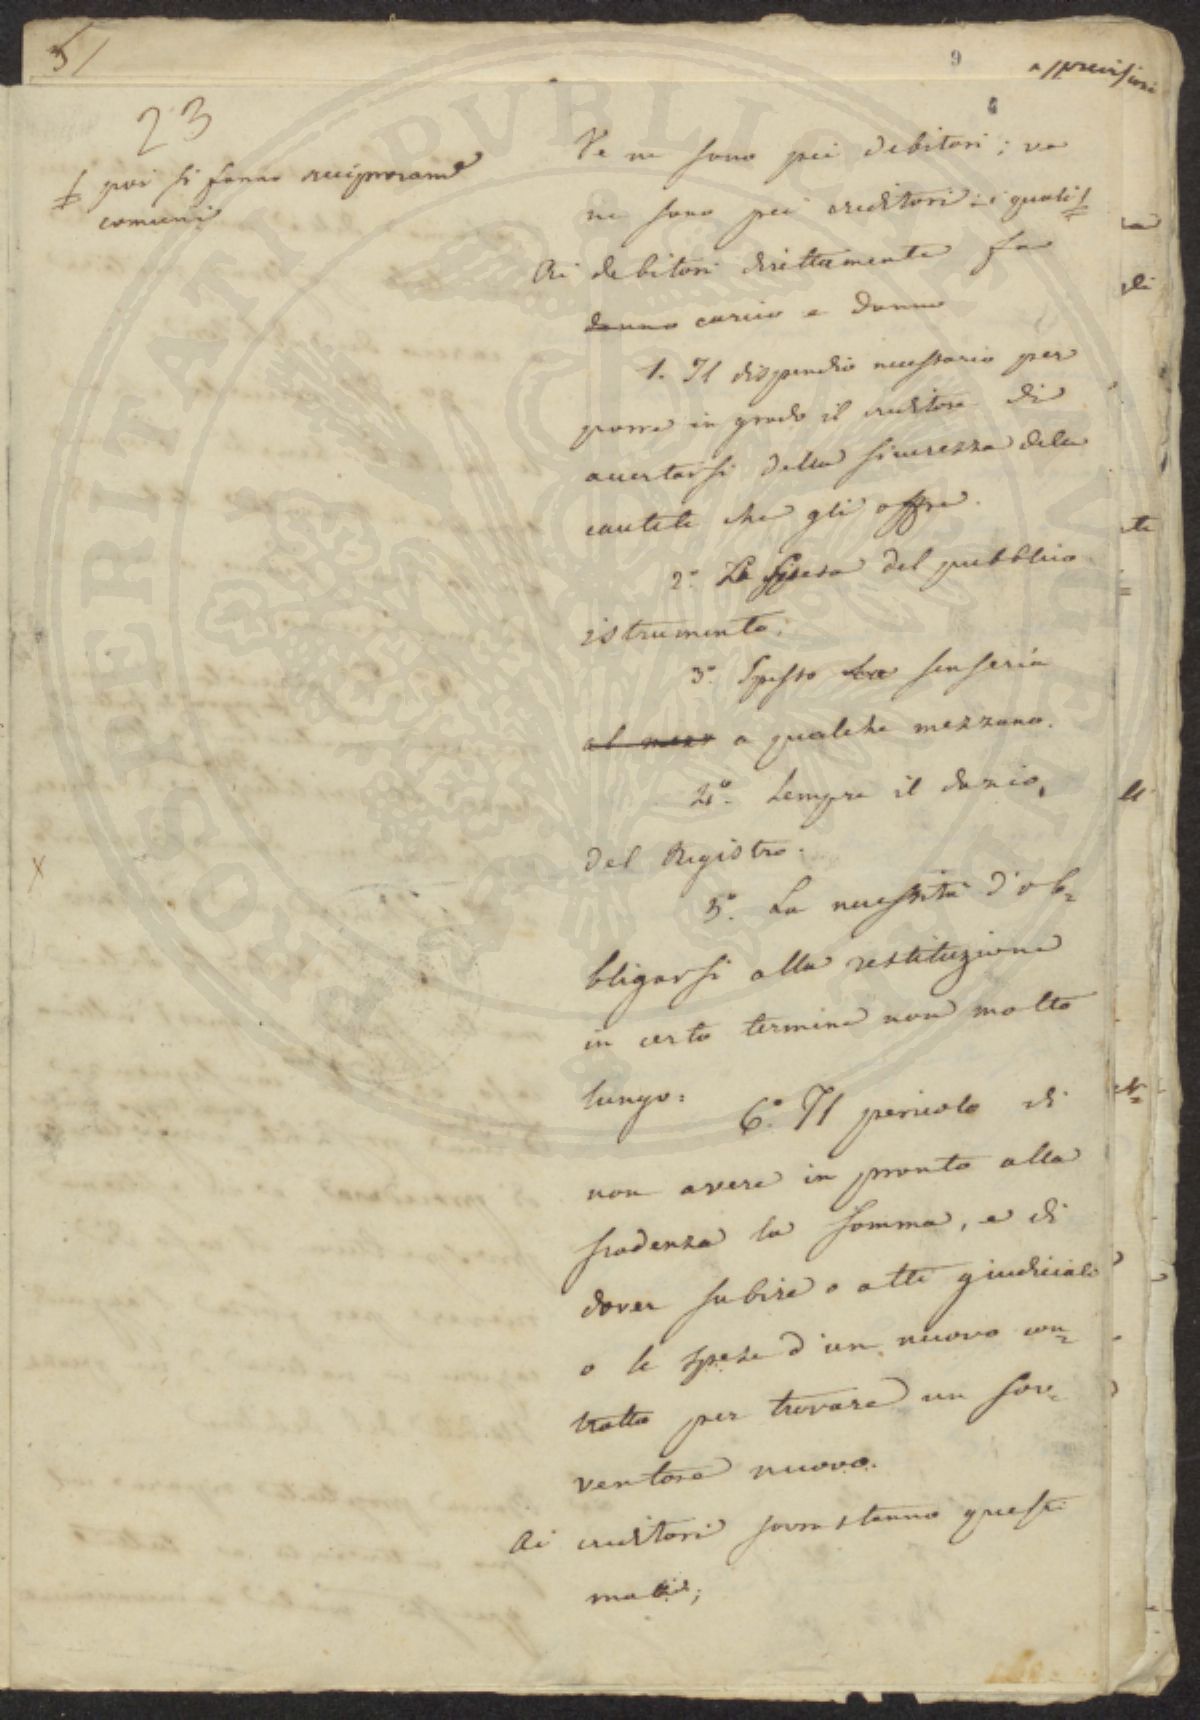 5/
9
23
Ve ne sono pei debitori; ve
ne sono pei creditori: i quali
poi si fanno reciprocame
comuni
Ai debitori direttamente fa
danno carico e danno
1. Il dispendio necessario per
porre in grado il creditore di
accertarsi della sicurezza delle
cautele che gli offre.
2.º La spesa del pubblico
istrumento;
3.º Spesso la senseria
al mezz a qualche mezzano.
4.º Sempre il dazio
del Registro.
5.º La necessità d'ob=
bligarsi alla restituzione
in certo termine non molto
lungo:
6.º Il pericolo di
non avere in pronto alla
scadenza la somma, e di
dover subire o atti giudiciali
o le spese d'un nuovo con=
tratto per trovare un sov=
ventore nuovo.
Ai creditori sovrastanno questi
mali;